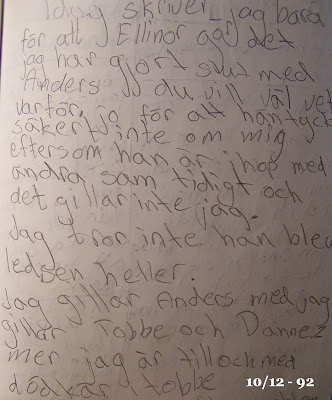 Idag skriver jag bara
för att Ellinor gör det
jag har gjort slut med
Anders du vill väl vet
varför, jo för att han tyck
säkert inte om mig
eftersom han är ihop med
andra sam tidigt och
det gillar inte jag.
Jag tror inte han blev
ledsen heller.
Jag gillar Anders med jag
gillar Tobbe och Danne
mer jag är till och med
dödkär i tobbe
10/12 - 92